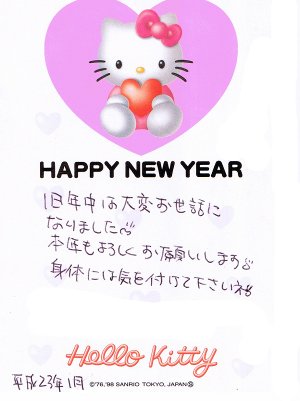 HAPPY NEW YEAR
旧年中は大変お世話に
なりました
本年もよろしくお願いします
身体には気を付けて下さいネ
Hello Kitty
平成23年1月
©'76,'98 SANRIO TOKYO, JAPAN